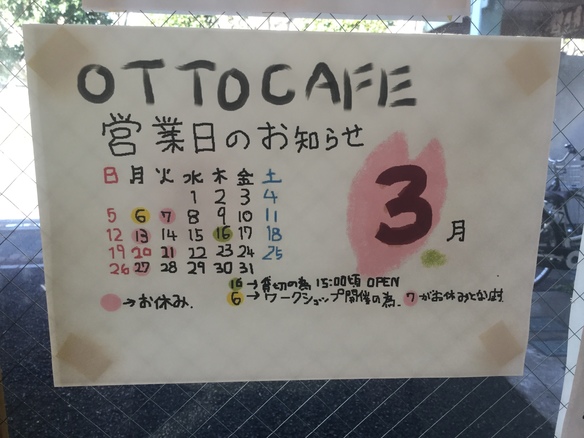 OTTO CAFE
営業日のお知らせ
3月
日 月 火 水 木 金 土
1 2 3 4
5 6 7 8 9 10 11
12 13 14 15 16 17 18
19 20 21 22 23 24 25
26 27 28 29 30 31
16→貸切の為 15:00頃 OPEN
→お休み.
6→ワークショップ開催の為. 7がお休みとなります